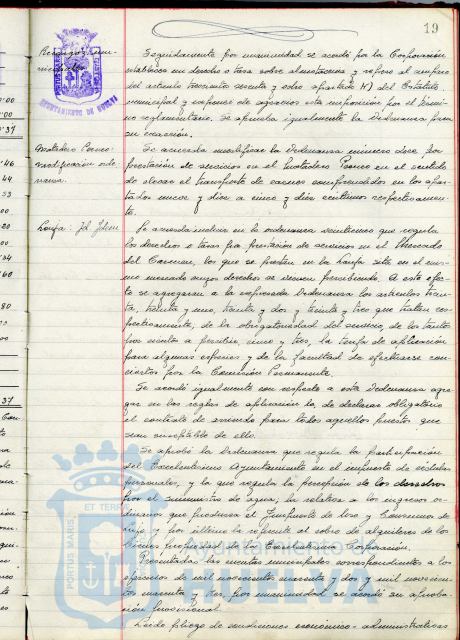 19
Seguidamente por unanimidad se acordó por la Corporación
establecer un derecho o tasa sobre alcantarillas y rejeros al amparo
del artículo trescientos sesenta y ocho apartado H) del Estatuto
municipal y exponer de agravios esta imposición por el térmi-
no reglamentario. Se aprueba igualmente la Ordenanza para
su exacción.
Matadero Porcino:
modificación orde-
nanza.
Se acuerda modificar la Ordenanza número doce por
prestación de servicios en el Matadero Porcino en el sentido
de elevar el transporte de carnes comprendidos en los apar-
tados nueve y diez a cinco y diez céntimos respectivamen-
te.
Lonja: Id Idem
Se acuerda incluir en la ordenanza veintinueve que regula
los derechos o tasas por prestación de servicios en el Mercado
del Carmen, los que se presten en la Lonja sita en el mis-
mo mercado cuyos derechos se vienen percibiendo. A este efec-
to se agregarán a la expresada Ordenanza los artículos trein-
ta, treinta y uno, treinta y dos y treinta y tres que tratan res-
pectivamente, de la obligatoriedad del servicio, de los tantos
por ciento a percibir, cinco y tres, la tarifa de aplicación
para algunas especies y de la facultad de efectuarse con-
ciertos por la Comisión Permanente.
Se acordó igualmente con respecto a esta Ordenanza agre-
gar en las reglas de aplicación la, de declarar obligatorio
el contrato de arriendo para todos aquellos puestos que
sean susceptible de ello.
Se aprobó la Ordenanza que regula la participación
del Excelentísimo Ayuntamiento en el impuesto de cédulas
personales, y la que regula la percepción de los derechos
por el suministro de agua, la relativa a los ingresos or-
dinarios que produzca el Impuesto de Uso y Consumos de
Lujo y por último la referente al cobro de alquileres de los
bienes propiedad de la Excelentísima Corporación.
Presentadas las cuentas municipales correspondientes a los
ejercicios de mil novecientos cuarenta y dos y mil novecien-
tos cuarenta y tres, por unanimidad se acordó su aproba-
ción provisional.
Leído pliego de condiciones económico-administrativas
AYUNTAMIENTO DE HUELVA
PORTUS MARIS ET TERRAE
Ayuntamiento de
HUELVA